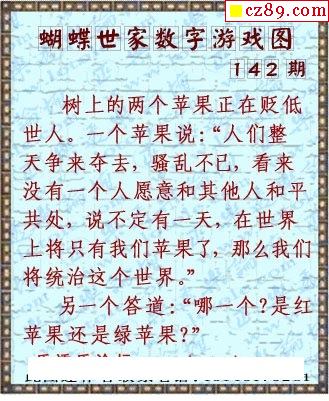 cz89.com
蝴蝶世家数字游戏图
142 期
树上的两个苹果正在贬低
世人。一个苹果说：“人们整
天争来夺去，骚乱不已，看来
没有一个人愿意和其他人和平
共处，说不定有一天，在世界
上将只有我们苹果了，那么我们
将统治这个世界。”
另一个答道：“哪一个？是红
苹果还是绿苹果？”